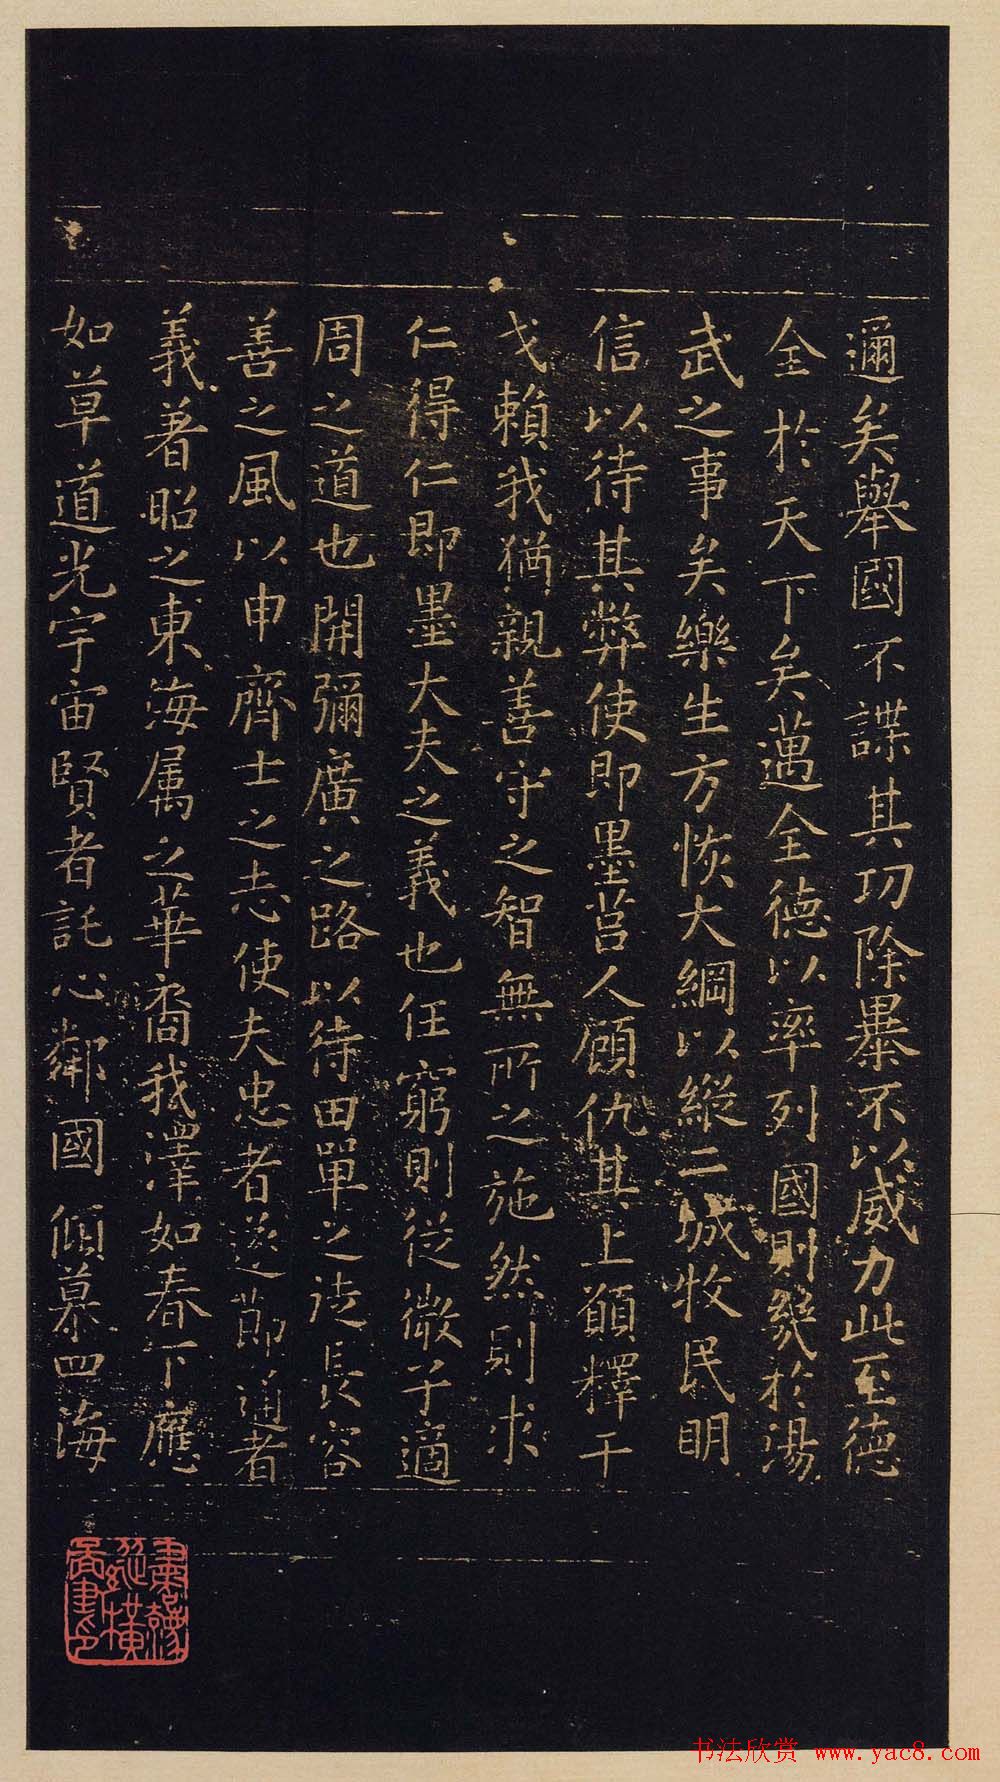 邇矣舉國不謀其功除暴不以威力此至德
全於天下矣邁全德以率列國則幾於湯
武之事矣樂生方恢大綱以縱二城牧民明
信以待其弊使即墨莒人顧仇其上願釋干
戈賴我猶親善守之智無所之施然則求
仁得仁即墨大夫之義也任窮則從微子適
周之道也開彌廣之路以待田單之徒長容
善之風以申齊士之志使夫忠者遂節通者
義著昭之東海属之華裔我澤如春下應
如草道光宇宙賢者託心鄰國傾慕四海
书法欣赏 www.yac8.com